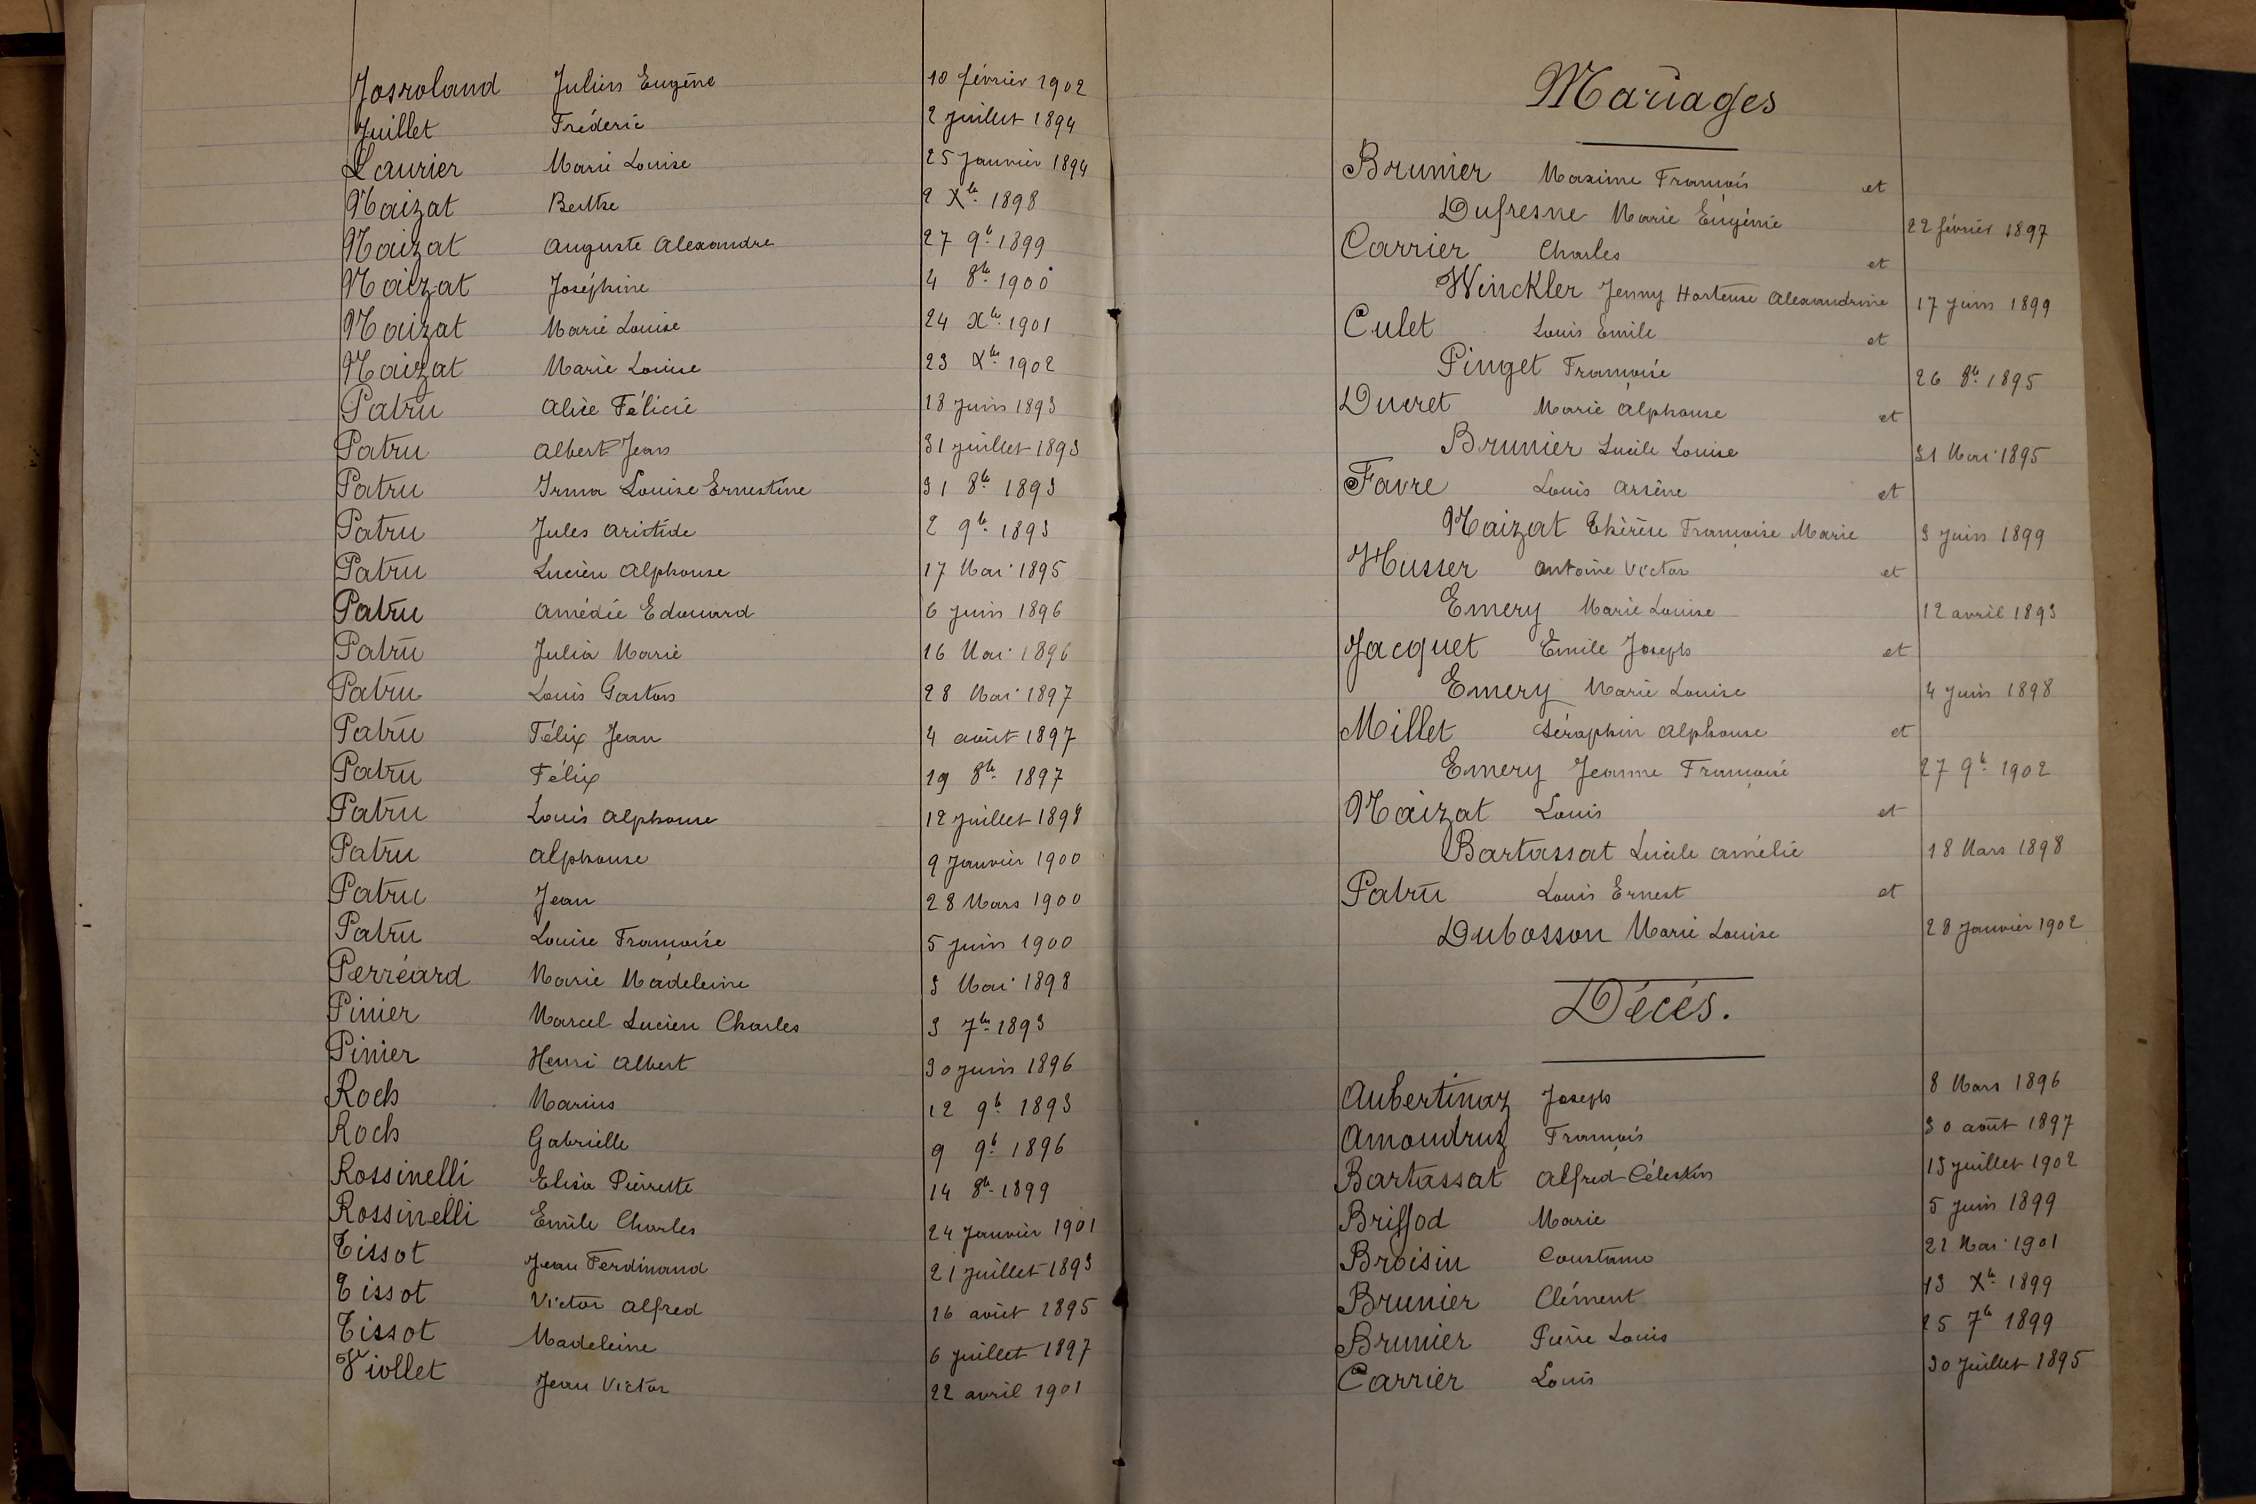 Josroland Julien Eugène 10 février 1902
Juillet Fréderic 2 juillet 1894
Laurier Marie Louise 25 Janvier 1894
Naizat Berthe 2 Xbre 1898
Naizat Auguste Alexandre 27 9b 1899
Naizat Joséphine 4 8bre 1900
Naizat Marie Louise 24 Xbre 1901
Naizat Marie Louise 23 Xbre 1902
Patru Alice Félicie 18 juin 1893
Patru Albert Jean 31 juillet 1893
Patru Irma Louise Ernestine 31 8bre 1893
Patru Jules Aristide 2 9b 1893
Patru Lucien Alphonse 17 Mai 1895
Patru Amédée Edouard 6 juin 1896
Patru Julia Marie 16 Mai 1896
Patru Louis Gaston 28 Mai 1897
Patru Félix Jean 4 août 1897
Patru Félix 19 8bre 1897
Patru Louis Alphonse 12 juillet 1898
Patru Alphonse 9 Janvier 1900
Patru Jean 28 Mars 1900
Patru Louise Françoise 5 juin 1900
Perréard Marie Madeleine 3 Mai 1898
Pinier Marcel Lucien Charles 3 7bre 1893
Pinier Henri Albert 30 juin 1896
Roch Marius 12 9b 1893
Roch Gabrielle 9 9b 1896
Rossinelli Elisa Pierrette 14 8b 1899
Rossinelli Emile Charles 24 Janvier 1901
Tissot Jean Ferdinand 21 juillet 1893
Tissot Victor Alfred 16 août 1895
Tissot Madeleine 6 juillet 1897
Viollet Jean Victor 22 avril 1901
Mariages
Brunier Maxime François et
Dufresne Marie Eugénie 22 février 1897
Carrier Charles et
Winckler Jenny Hortense Alexandrine 17 juin 1899
Culet Louis Emile et
Pinget Françoise 26 8b 1895
Ducret Marie Alphonse et
Brunier Lucile Louise 31 Mai 1895
Favre Louis Arsène et
Naizat Thérèse Françoise Marie 3 juin 1899
Husser Antoine Victor et
Emery Marie Louise 12 avril 1893
Jacquet Emile Joseph et
Emery Marie Louise 4 juin 1898
Millet Séraphin Alphonse et
Emery Jeanne Françoise 27 9b 1902
Naizat Louis et
Bartassat Lucile Amélie 18 Mars 1898
Patru Louis Ernest et
Dubosson Marie Louise 28 Janvier 1902
Décés.
Aubertinaz Joseph 8 Mars 1896
Amoudruz François 30 août 1897
Bartassat Alfred Célestin 13 juillet 1902
Briffod Marie 5 juin 1899
Broisin Constance 21 Mai 1901
Brunier Clément 13 Xbre 1899
Brunier Pierre Louis 25 7b 1899
Carrier Louis 30 Juillet 1895